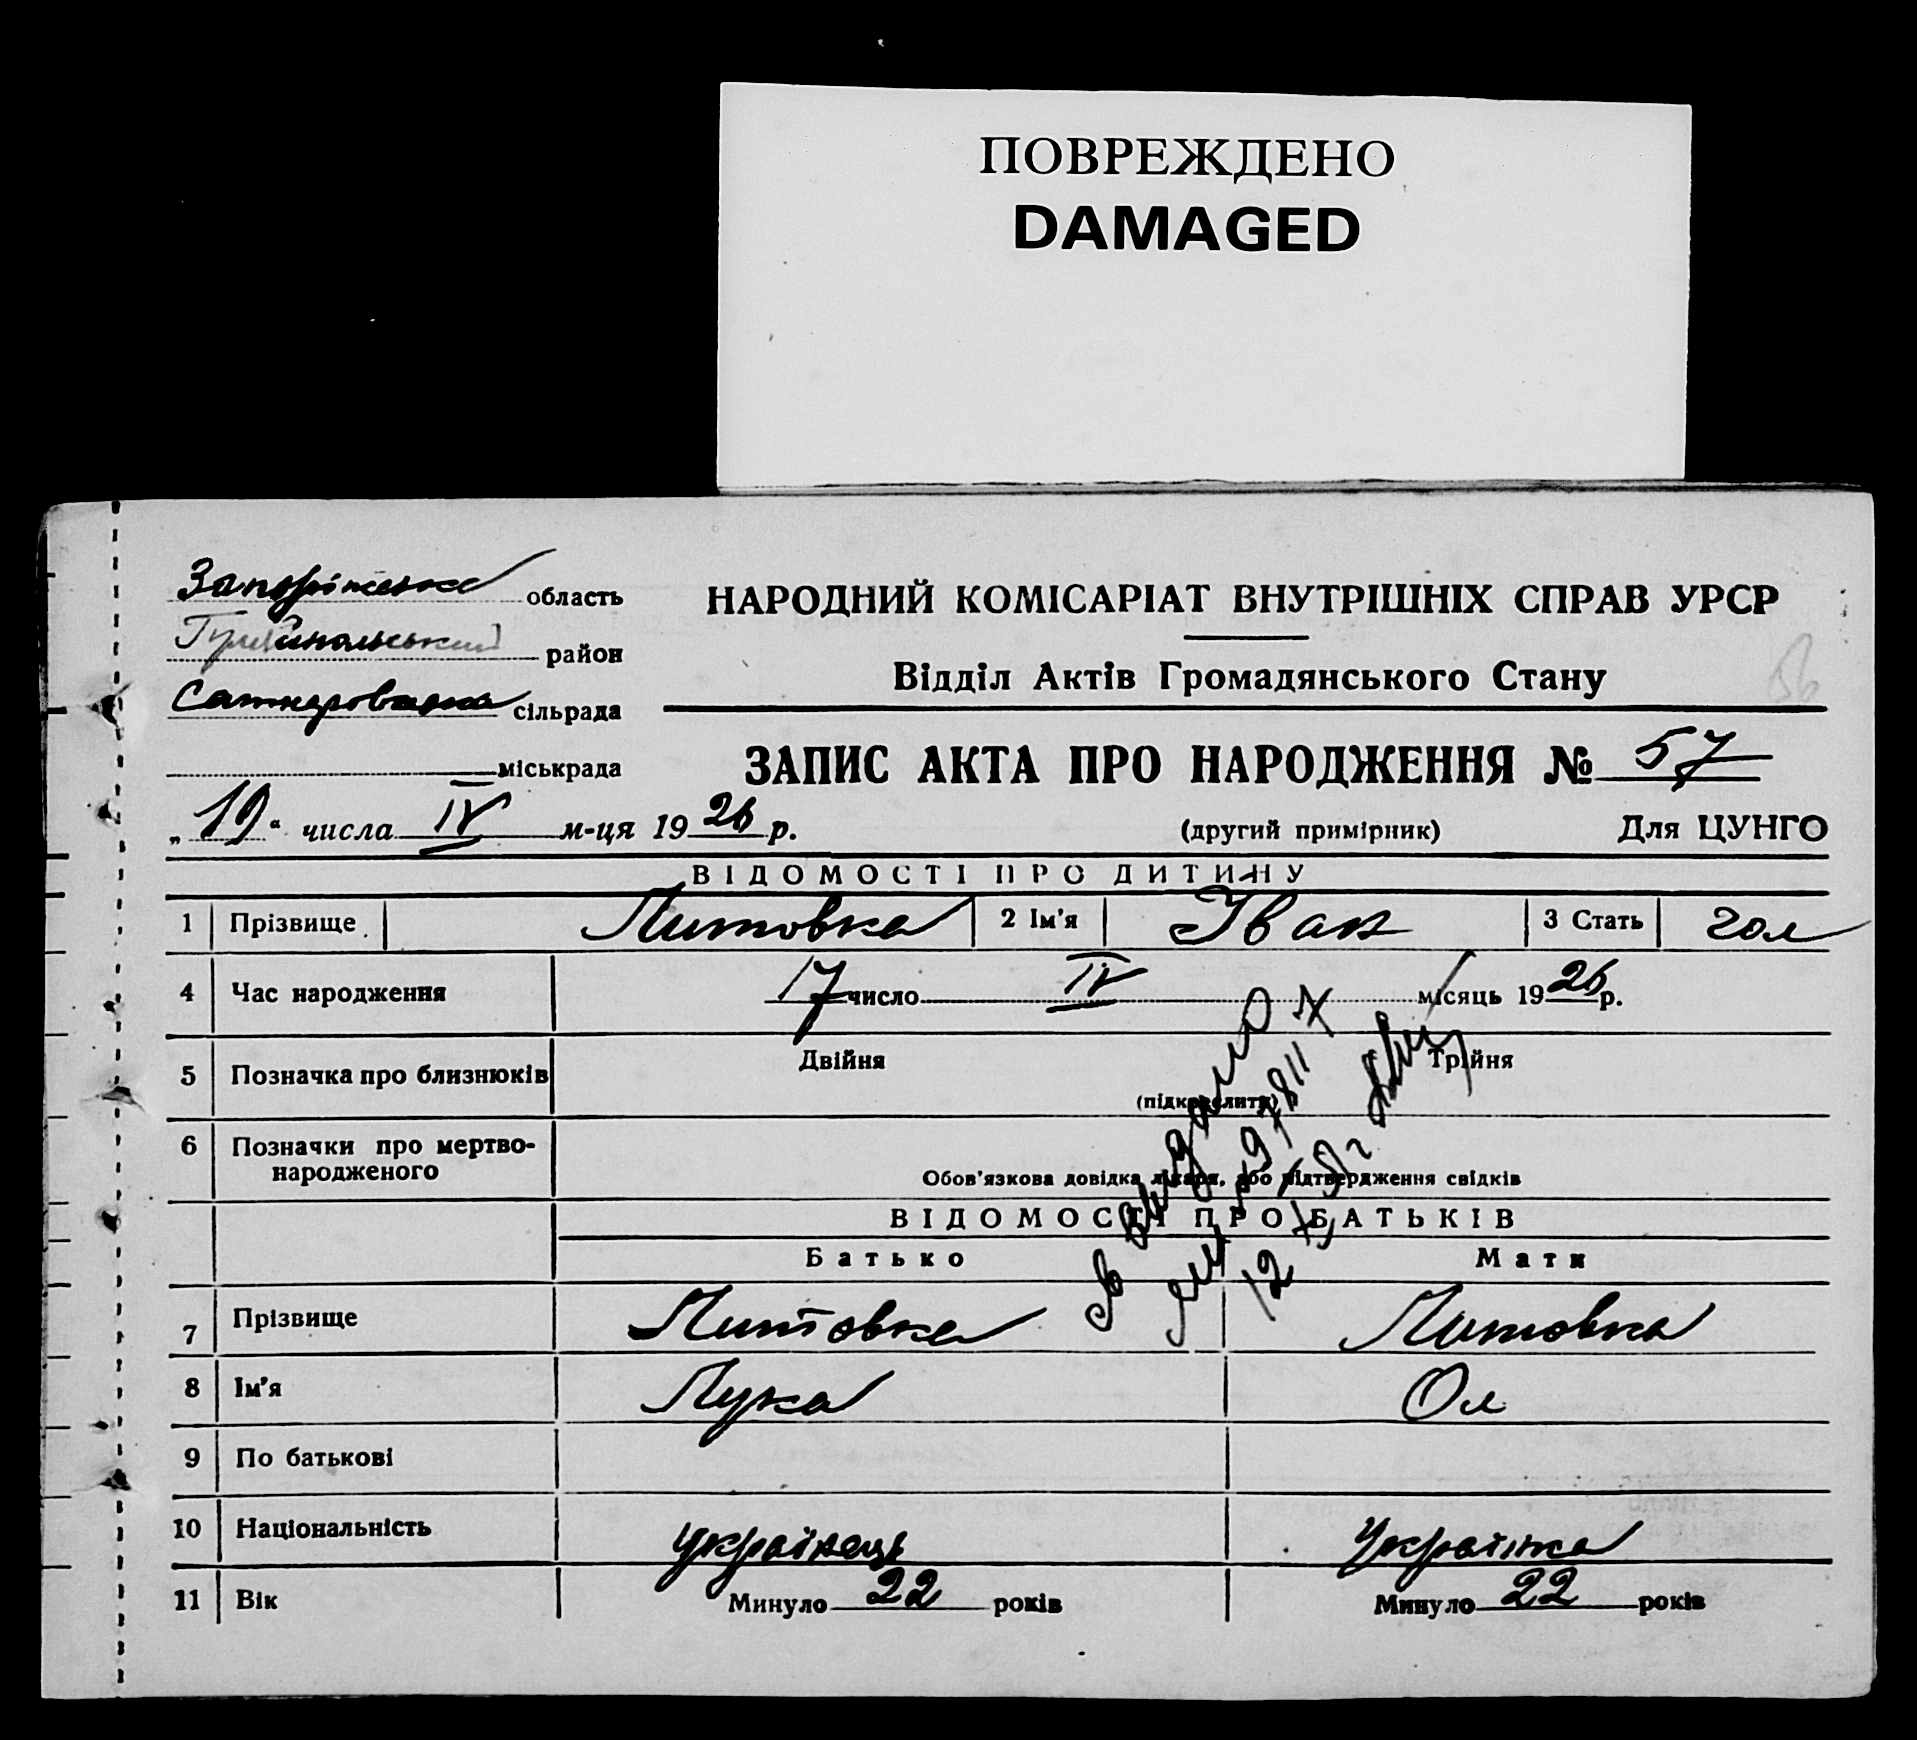 ПОВРЕЖДЕНО
DAMAGED
Запоріжська область
Гуляйпольський район
сільрада
міськрада
НАРОДНИЙ КОМІСАРІАТ ВНУТРІШНІХ СПРАВ УРСР
Відділ Актів Громадянського Стану
ЗАПИС АКТА ПРО НАРОДЖЕННЯ № 57
„19“ числа IV м-ця 1926 р.
(другий примірник) Для ЦУНГО
ВІДОМОСТІ ПРО ДИТИНУ
1 Прізвище Литовка 2 Ім'я Іван 3 Стать чол
4 Час народження 17 число IV місяць 1926 р.
5 Позначка про близнюків Двійня Трійня
(підкреслити)
6 Позначки про мертво-
народженого
Обов'язкова довідка лікаря, або підтвердження свідків
ВІДОМОСТІ ПРО БАТЬКІВ
Батько Мати
7 Прізвище Литовка Литовка
8 Ім'я Лука Ол
9 По батькові
10 Національність українець Українка
11 Вік Минуло 22 років Минуло 22 років